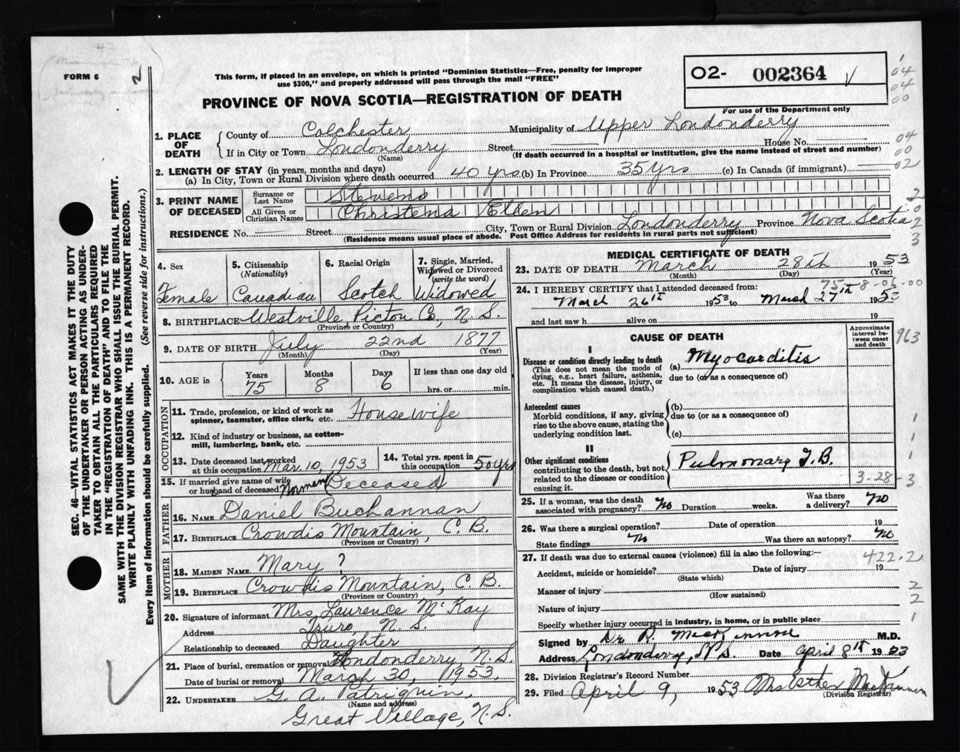 FORM 6
2
This form, if placed in an envelope, on which is printed "Dominion Statistics—Free, penalty for improper
use $300," and properly addressed will pass through the mail "FREE"
O2- 002364
For use of the Department only
PROVINCE OF NOVA SCOTIA—REGISTRATION OF DEATH
1. PLACE OF DEATH
County of Colchester Municipality of Upper Londonderry
If in City or Town Londonderry Street House No.
(Name) (If death occurred in a hospital or institution, give the name instead of street and number)
2. LENGTH OF STAY (in years, months and days)
(a) In City, Town or Rural Division where death occurred 40 yrs (b) In Province 35 yrs (c) In Canada (if immigrant)
3. PRINT NAME OF DECEASED
Surname or Last Name Stevens
All Given or Christian Names Christena Ellen
RESIDENCE No. Street City, Town or Rural Division Londonderry Province Nova Scotia
(Residence means usual place of abode. Post Office Address for residents in rural parts not sufficient)
4. Sex
Female
5. Citizenship
(Nationality)
Canadian
6. Racial Origin
Scotch
7. Single, Married, Widowed or Divorced
(write the word)
Widowed
8. BIRTHPLACE Westville Pictou Co, N.S.
(Province or Country)
9. DATE OF BIRTH July 22nd 1877
(Month) (Day) (Year)
10. AGE in
Years Months Days If less than one day old
75 8 6 hrs. or min.
OCCUPATION
11. Trade, profession, or kind of work as spinner, teamster, office clerk, etc. Housewife
12. Kind of industry or business, as cotton-mill, lumbering, bank, etc.
13. Date deceased last worked at this occupation Mar. 10, 1953
14. Total yrs. spent in this occupation 50 yrs
15. If married give name of wife or husband of deceased Norman (Deceased)
FATHER
16. NAME Daniel Buchannan
17. BIRTHPLACE Crowdis Mountain, C.B.
(Province or Country)
MOTHER
18. MAIDEN NAME Mary ?
19. BIRTHPLACE Crowdis Mountain, C.B.
(Province or Country)
20. Signature of informant Mrs. Laurence McKay
Address Truro N.S.
Relationship to deceased Daughter
21. Place of burial, cremation or removal Londonderry, N.S.
Date of burial or removal March 30, 1953.
22. UNDERTAKER G. A. Patriquin,
(Name and address)
Great Village, N.S.
MEDICAL CERTIFICATE OF DEATH
23. DATE OF DEATH March 28th 1953
(Month) (Day) (Year)
75-8-06-00
24. I HEREBY CERTIFY that I attended deceased from:
March 26th 1953 to March 27th 1953
and last saw h alive on 19
CAUSE OF DEATH
Approximate interval between onset and death
963
I
Disease or condition directly leading to death
(This does not mean the mode of dying, e.g., heart failure, asthenia, etc. It means the disease, injury, or complication which caused death.)
(a) Myocarditis
due to (or as a consequence of)
Antecedent causes
Morbid conditions, if any, giving rise to the above cause, stating the underlying condition last.
(b)
due to (or as a consequence of)
(c)
II
Other significant conditions
contributing to the death, but not related to the disease or condition causing it.
Pulmonary T.B.
3-28-3
25. If a woman, was the death associated with pregnancy? No Duration weeks. Was there a delivery? No
26. Was there a surgical operation? No Date of operation 19
State findings Was there an autopsy? No
27. If death was due to external causes (violence) fill in also the following:—
422.2
Accident, suicide or homicide? Date of injury 19
(State which)
Manner of injury
(How sustained)
Nature of injury
Specify whether injury occurred in industry, in home, or in public place
Signed by Dr R. M.D.
Address Londonderry, N.S. Date April 8th 1953
28. Division Registrar's Record Number
29. Filed April 9, 1953 Mrs Esther
(Division Registrar)
SEC. 46—VITAL STATISTICS ACT MAKES IT THE DUTY
OF THE UNDERTAKER OR PERSON ACTING AS UNDER-
TAKER TO OBTAIN ALL THE PARTICULARS REQUIRED
IN THE "REGISTRATION OF DEATH" AND TO FILE THE
SAME WITH THE DIVISION REGISTRAR WHO SHALL ISSUE THE BURIAL PERMIT.
WRITE PLAINLY WITH UNFADING INK. THIS IS A PERMANENT RECORD.
Every item of information should be carefully supplied. (See reverse side for instructions.)